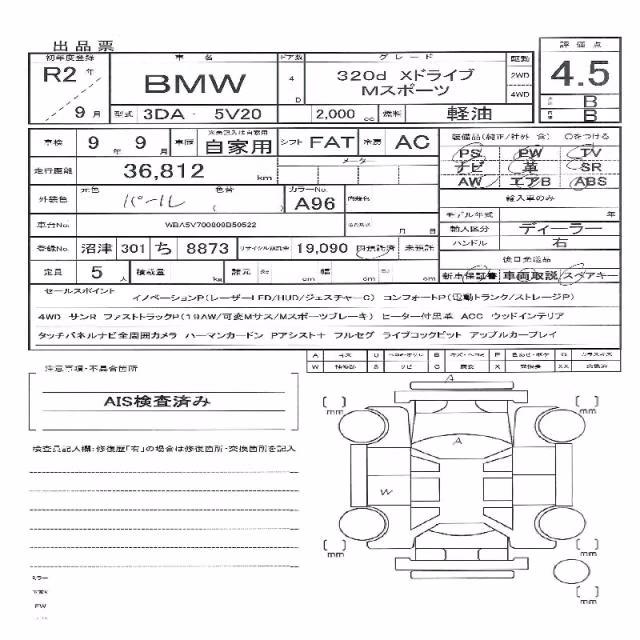 出品票
初年度登録 車名 ドア数 グレード 駆動 評価点
R2年 9月 BMW 4 D 320d Xドライブ 2WD 4.5
Mスポーツ 4WD B
型式 3DA - 5V20 2,000 cc 燃料 軽油 B
車検 9年 9月 車歴 自家用 シフト FAT 冷房 AC 装備品(純正/社外 含) ○をつける
PS PW TV
走行距離 36,812 km メーター ナビ 革 SR
AW エアB ABS
外装色 元色 パール 色替 ( ) カラーNo. A96 輸入車のみ
モデル年式 年
車台No. WBA5V700800B50522 月 日 輸入区分 ディーラー
登録No. 沼津 301 ち 8873 リサイクル預託金 19,090 預託済 未預託 ハンドル 右
後日発送品
定員 5人 積載量 kg 諸元 cm cm cm 新車保証書 車両取説 スペアキー
セールスポイント イノベーションP(レーザーLED/HUD/ジェスチャーC) コンフォートP(電動トランク/ストレージP)
4WD サンR ファストトラックP(19AW/可変Mサス/Mスポーツブレーキ) ヒーター付黒革 ACC ウッドインテリア
タッチパネルナビ全周囲カメラ ハーマンカードン Pアシスト+ フルセグ ライブコックピット アップルカープレイ
注意事項・不具合箇所
AIS検査済み
検査員記入欄:修復歴「有」の場合は修復箇所・交換箇所を記入
A
[ ] mm [ ] mm
A
W
[ ] mm [ ] mm
[ ] mm